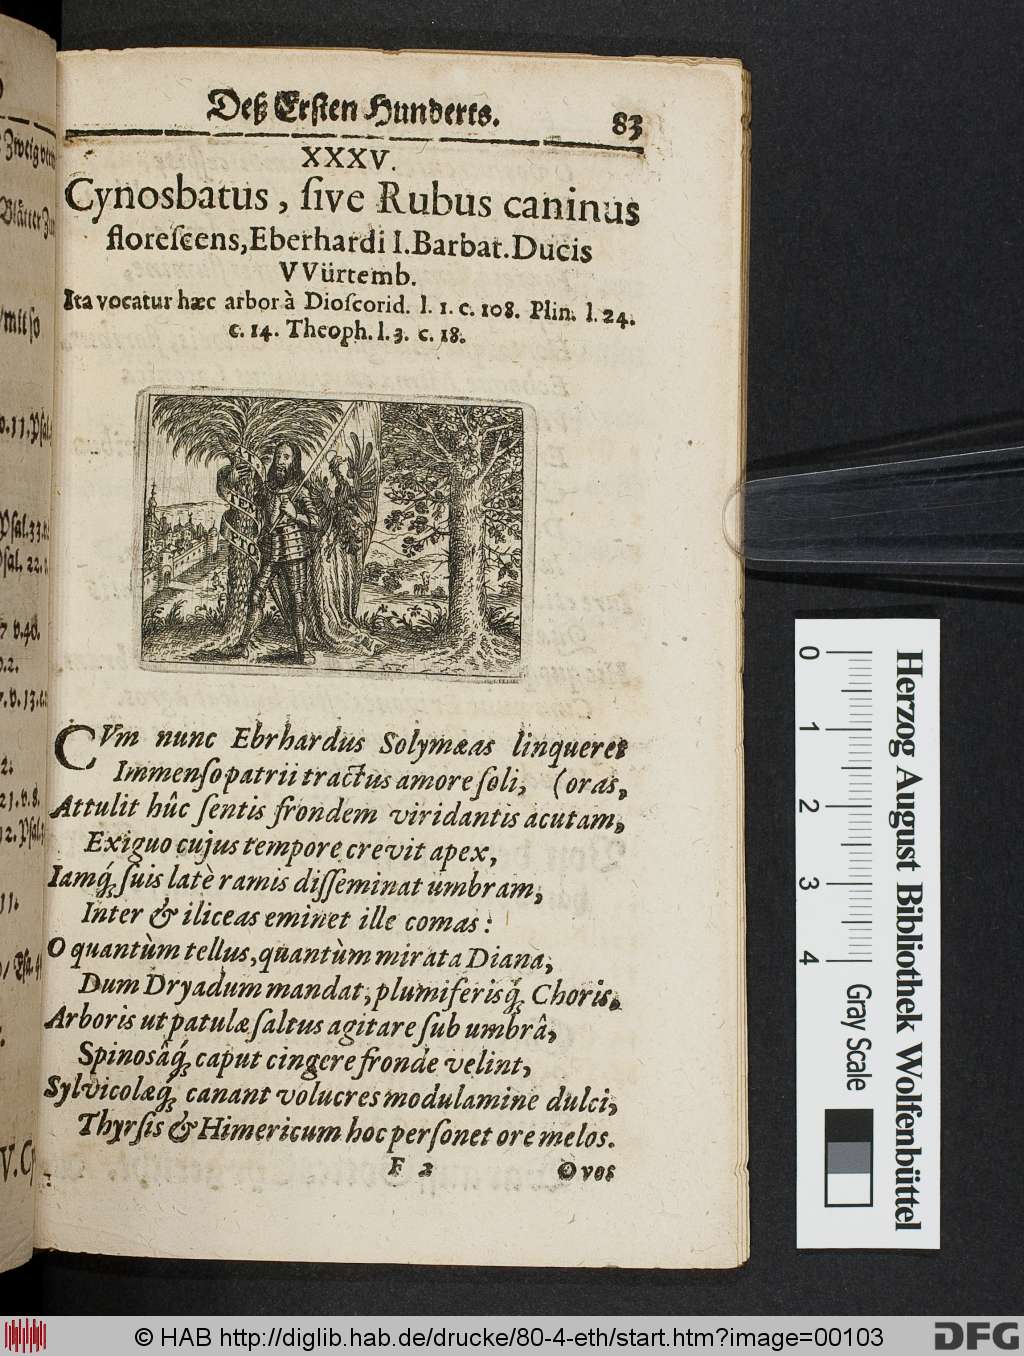 Deß Ersten Hunderts. 83
XXXV.
Cynosbatus, ſive Rubus caninus
floreſcens, Eberhardi I. Barbat. Ducis
VVürtemb.
Ita vocatur hæc arbor à Dioſcorid. l. 1. c. 108. Plin. l. 24.
c. 14. Theoph. l. 3. c. 18.
CVm nunc Ebrhardus Solymæas linqueret
Immenſo patrii tractus amore ſoli, (oras,
Attulit hûc ſentis frondem viridantis acutam,
Exiguo cujus tempore crevit apex,
Iamq́; ſuis latè ramis diſſeminat umbram,
Inter & iliceas eminet ille comas:
O quantùm tellus, quantùm mirata Diana,
Dum Dryadum mandat, plumiferisq́; Choris,
Arboris ut patulæ ſaltus agitare ſub umbrâ,
Spinosâq́; caput cingere fronde velint,
Sylvicolæq́; canant volucres modulamine dulci,
Thyrſis & Himericum hoc perſonet ore melos.
F 2 Ovos
Zweig
Blätter
/mit ſo
v. 11. Pſal.
Pſal. 33.
Pſal. 22.
v. 48.
v. 2.
v. 13.
2.
21. v. 8.
12. Pſal.
11.
Pſa.
V. Cy
0 1 2 3 4
Herzog August Bibliothek Wolfenbüttel
Gray Scale
© HAB http://diglib.hab.de/drucke/80-4-eth/start.htm?image=00103
DFG